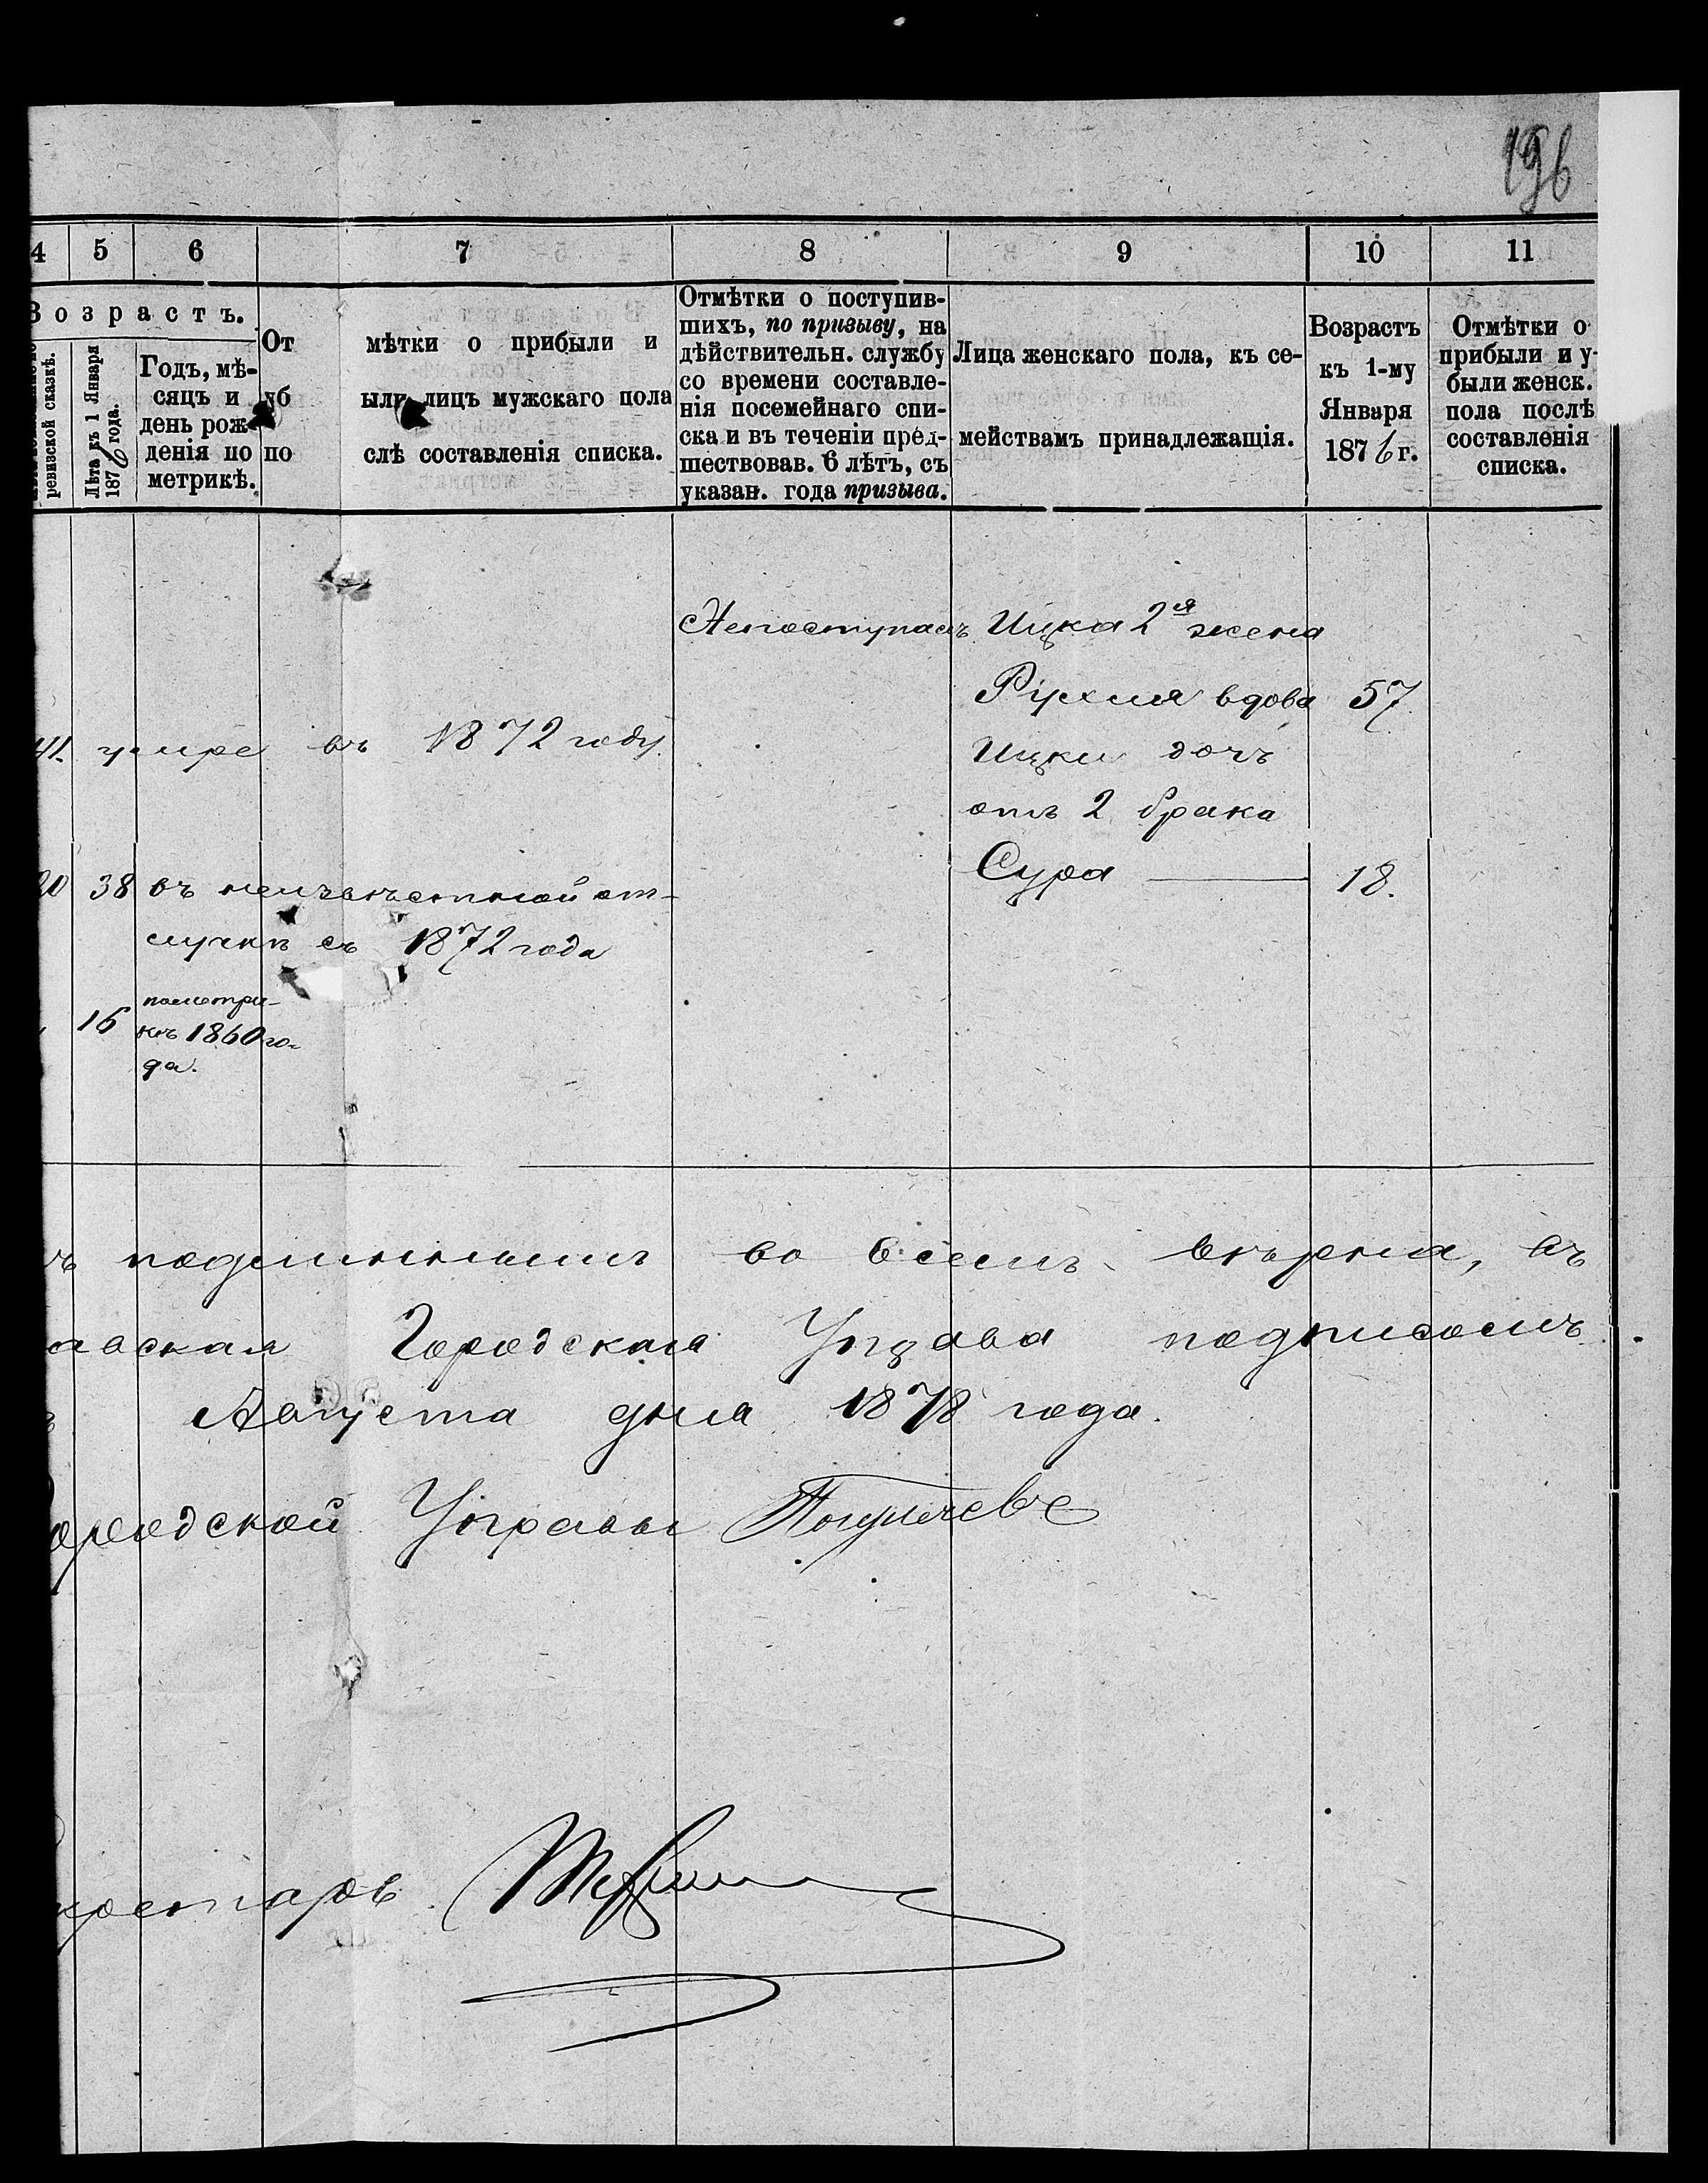 196
4 5 6 7 8 9 10 11
Возрастъ.
ревизской сказкѣ.
Лѣта къ 1 Января
1876 года.
Годъ, мѣ-
сяцъ и
день рож-
денія по
метрикѣ.
Отмѣтки о прибыли и
убыли лицъ мужскаго пола
послѣ составленія списка.
Отмѣтки о поступив-
шихъ, по призыву, на
дѣйствительн. службу
со времени составле-
нія посемейнаго спи-
ска и въ теченіи пред-
шествовав. 6 лѣтъ, съ
указан. года призыва.
Лица женскаго пола, къ се-
мействамъ принадлежащія.
Возрастъ
къ 1-му
Января
1876 г.
Отмѣтки о
прибыли и у-
были женск.
пола послѣ
составленія
списка.
Непоступалъ Ицка 2ая жена
вдова 57
41. умре въ 1872 году.
Ицки дочъ
отъ 2 брака
Сура 18.
20 38 въ неизвѣстной от-
лучкѣ съ 1872 года
16 пометри-
кѣ 1860 го-
да.
подлиннымъ во всемъ вѣрна, въ
Городская Управа подписомъ
Августа дня 1878 года.
Городской Управы